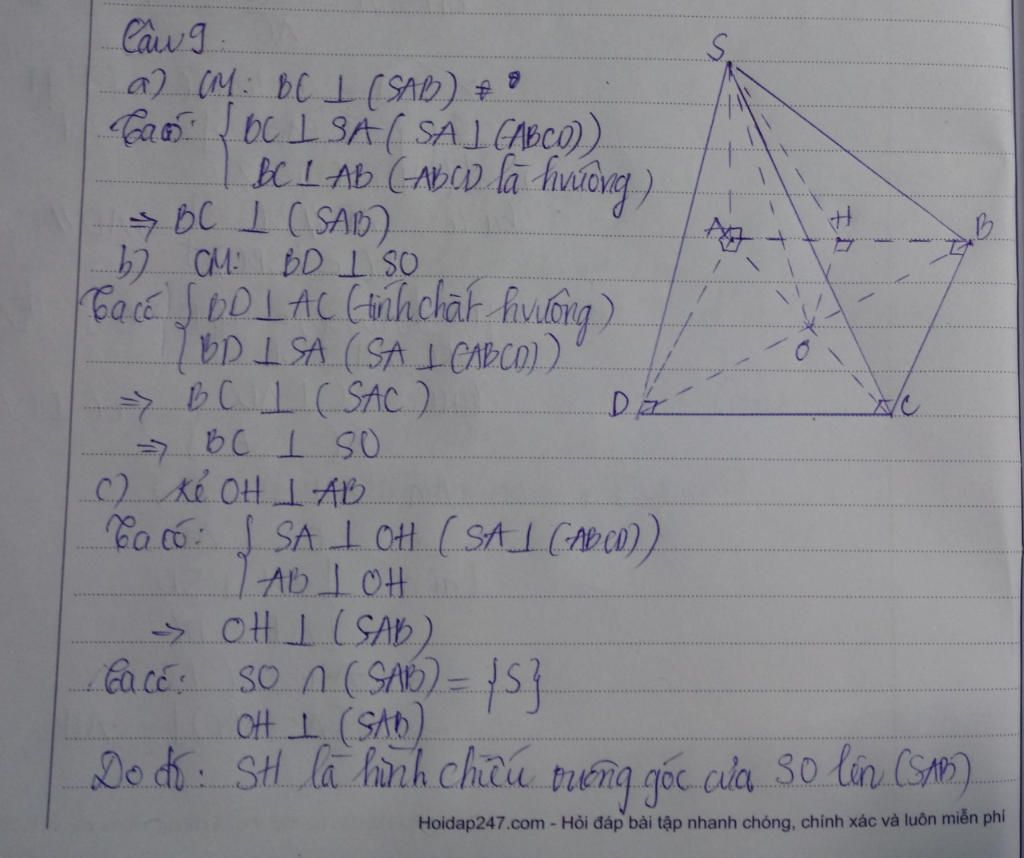 Câu 9.
a) CM: BC ⊥ (SAB)
Ta có: { BC ⊥ SA ( SA ⊥ (ABCD))
BC ⊥ AB (ABCD là hvuông)
⇒ BC ⊥ (SAB)
b) CM: BD ⊥ SO
Ta có { BD ⊥ AC (tính chất hvuông)
BD ⊥ SA (SA ⊥ (ABCD))
⇒ BC ⊥ (SAC)
⇒ BC ⊥ SO
c) Kẻ OH ⊥ AB
Ta có: { SA ⊥ OH ( SA ⊥ (ABCD))
AB ⊥ OH
⇒ OH ⊥ (SAB)
Ta có: SO ∩ (SAB) = {S}
OH ⊥ (SAB)
Do đó: SH là hình chiếu vuông góc của SO lên (SAB)
S
A
H
B
O
D
C
Hoidap247.com - Hỏi đáp bài tập nhanh chóng, chính xác và luôn miễn phí